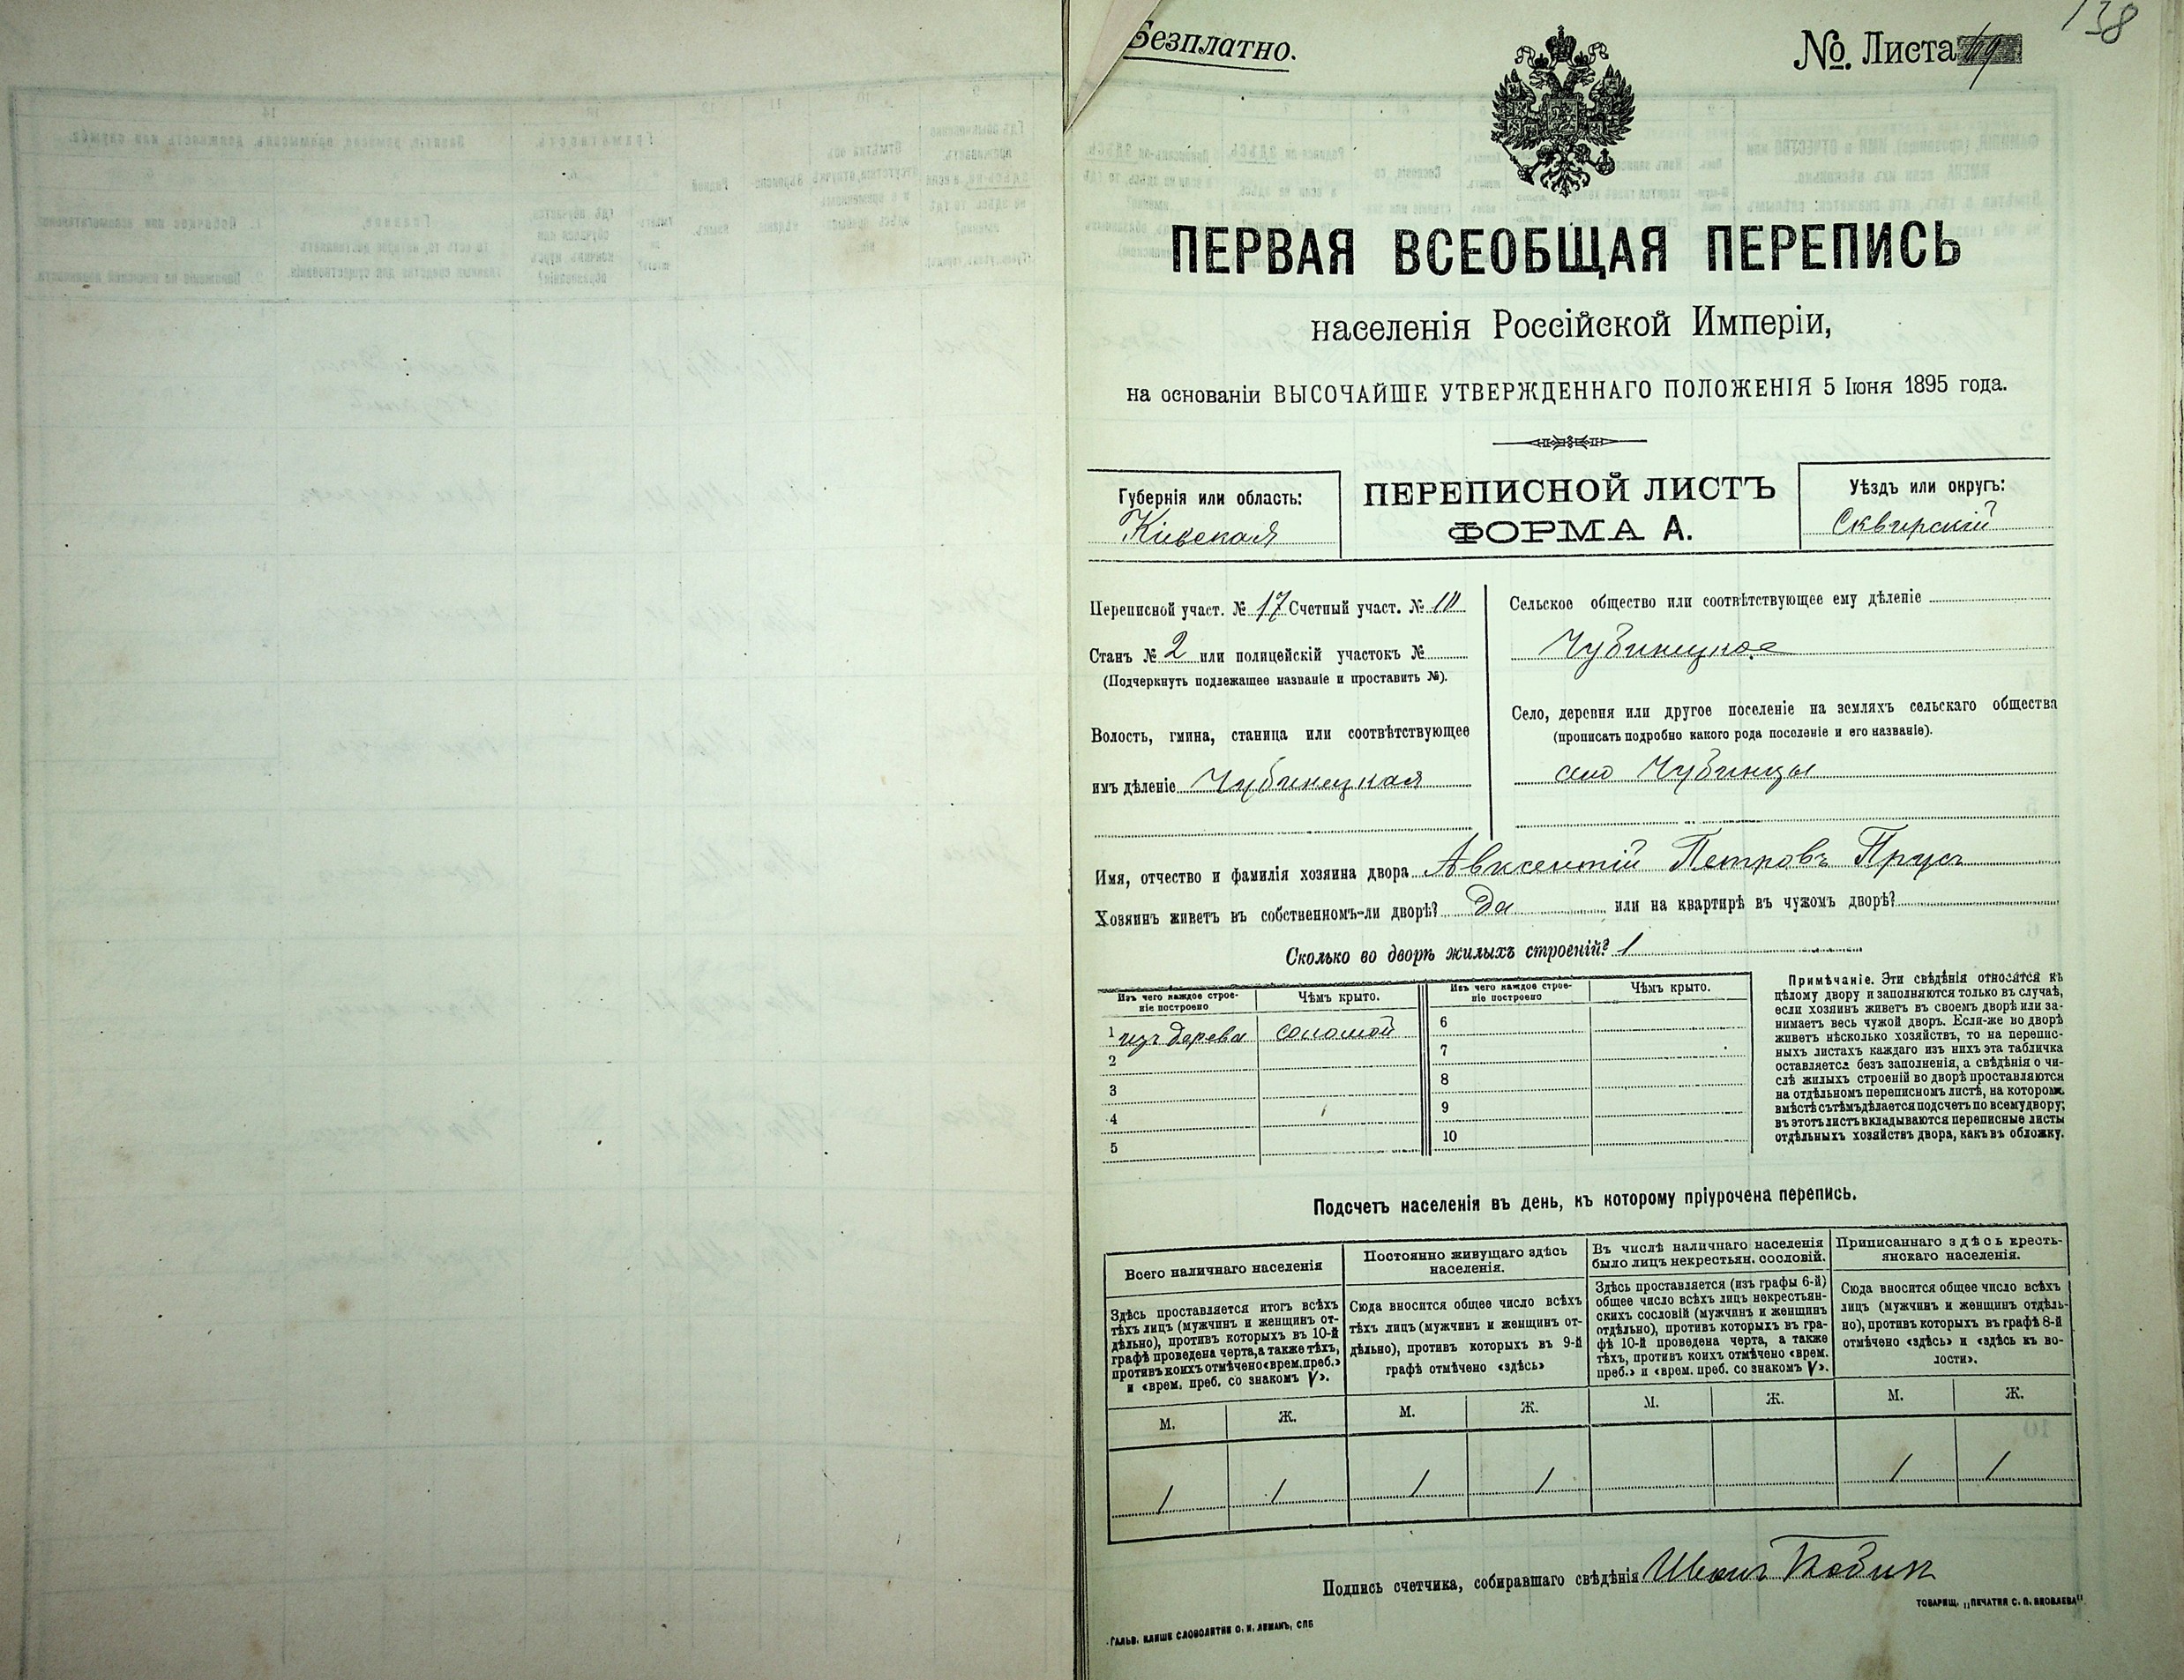 Безплатно.
№. Листа 69
138
ПЕРВАЯ ВСЕОБЩАЯ ПЕРЕПИСЬ
населенія Россійской Имперіи,
на основаніи ВЫСОЧАЙШЕ УТВЕРЖДЕННАГО ПОЛОЖЕНІЯ 5 Іюня 1895 года.
Губернія или область:
Кіевская
ПЕРЕПИСНОЙ ЛИСТЪ
ФОРМА А.
Уѣздъ или округъ:
Сквирскій
Переписной участ. № 17 Счетный участ. № III
Станъ № 2 или полицейскій участокъ №
(Подчеркнуть подлежащее названіе и проставить №).
Волость, гмина, станица или соотвѣтствующее
имъ дѣленіе Чубинецкая
Сельское общество или соотвѣтствующее ему дѣленіе
Чубинецкое
Село, деревня или другое поселеніе на земляхъ сельскаго общества
(прописать подробно какого рода поселеніе и его названіе).
село Чубинцы
Имя, отчество и фамилія хозяина двора Авксентій Петровъ Прусъ
Хозяинъ живетъ въ собственномъ-ли дворѣ? Да или на квартирѣ въ чужомъ дворѣ?
Сколько во дворѣ жилыхъ строеній? 1
Изъ чего каждое строе-
ніе построено
Чѣмъ крыто.
Изъ чего каждое строе-
ніе построено
Чѣмъ крыто.
1 изъ дерева соломой
2
3
4
5
6
7
8
9
10
Примѣчаніе. Эти свѣдѣнія относятся къ
цѣлому двору и заполняются только въ случаѣ,
если хозяинъ живетъ въ своемъ дворѣ или за-
нимаетъ весь чужой дворъ. Если-же во дворѣ
живетъ нѣсколько хозяйствъ, то на перепис-
ныхъ листахъ каждаго изъ нихъ эта табличка
оставляется безъ заполненія, а свѣдѣнія о чи-
слѣ жилыхъ строеній во дворѣ проставляются
на отдѣльномъ переписномъ листѣ, на которомъ
вмѣстѣ съ тѣмъ дѣлается подсчетъ по всему двору;
въ этотъ листъ вкладываются переписные листы
отдѣльныхъ хозяйствъ двора, какъ въ обложку.
Подсчетъ населенія въ день, къ которому пріурочена перепись.
Всего наличнаго населенія
Здѣсь проставляется итогъ всѣхъ
тѣхъ лицъ (мужчинъ и женщинъ от-
дѣльно), противъ которыхъ въ 10-й
графѣ проведена черта, а также тѣхъ,
противъ коихъ отмѣчено «врем. преб.»
и «врем. преб. со знакомъ V».
Постоянно живущаго здѣсь
населенія.
Сюда вносится общее число всѣхъ
тѣхъ лицъ (мужчинъ и женщинъ от-
дѣльно), противъ которыхъ въ 9-й
графѣ отмѣчено «здѣсь»
Въ числѣ наличнаго населенія
было лицъ некрестьян. сословій.
Здѣсь проставляется (изъ графы 6-й)
общее число всѣхъ лицъ некрестьян-
скихъ сословій (мужчинъ и женщинъ
отдѣльно), противъ которыхъ въ гра-
фѣ 10-й проведена черта, а также
тѣхъ, противъ коихъ отмѣчено «врем.
преб.» и «врем. преб. со знакомъ V».
Приписаннаго здѣсь кресть-
янскаго населенія.
Сюда вносится общее число всѣхъ
лицъ (мужчинъ и женщинъ отдѣль-
но), противъ которыхъ въ графѣ 8-й
отмѣчено «здѣсь» и «здѣсь къ во-
лости».
М. Ж. М. Ж. М. Ж. М. Ж.
1 1 1 1 1 1
Подпись счетчика, собиравшаго свѣдѣнія Иванъ
ТОВАРИЩ. „ПЕЧАТНЯ С. П. ЯКОВЛЕВА“.
Гальв. клише словолитни О. И. Леманъ, СПБ